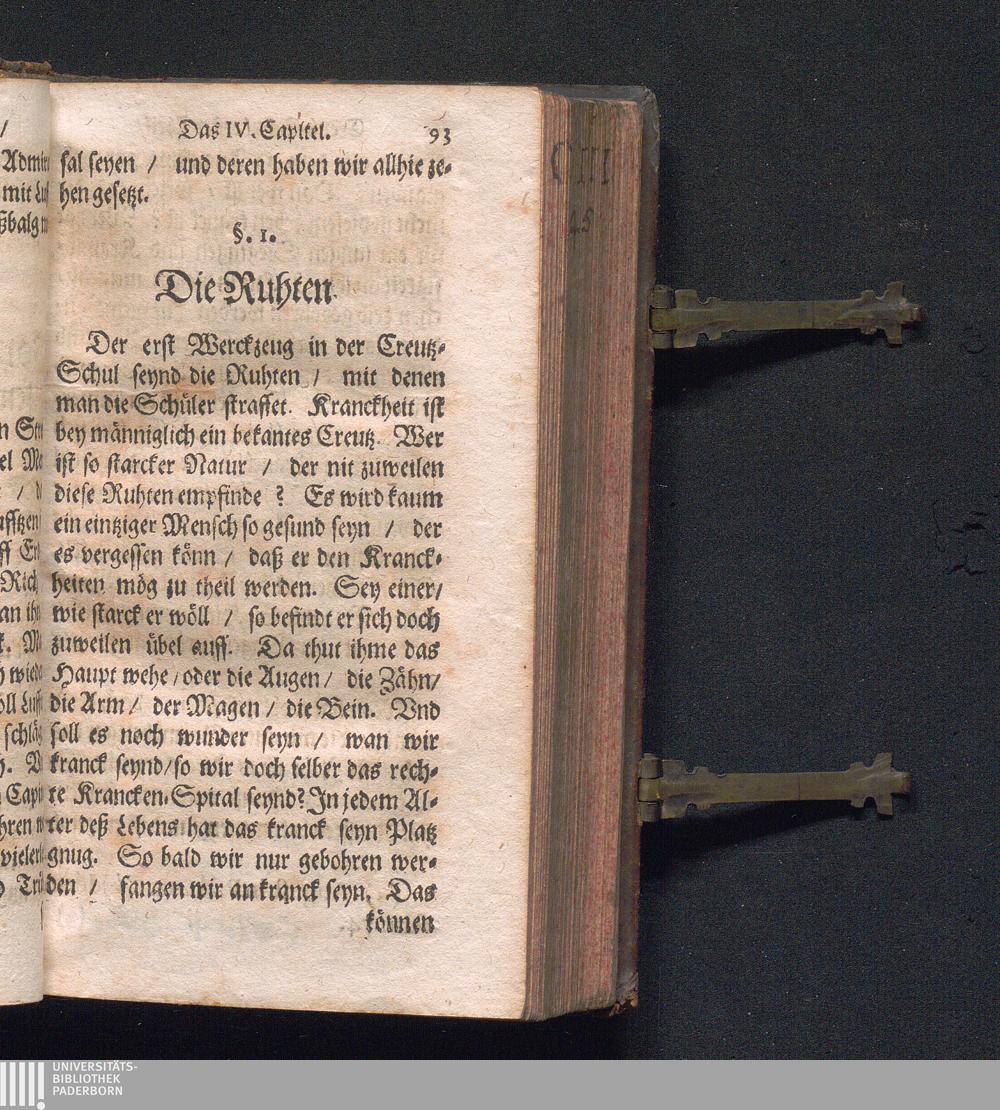 Das IV. Capitel. 93
sal seyen / und deren haben wir allhie ze-
hen gesetzt.
§. 1.
Die Ruhten.
Der erst Werckzeug in der Creutz-
Schul seynd die Ruhten / mit denen
man die Schüler straffet. Kranckheit ist
bey männiglich ein bekantes Creutz. Wer
ist so starcker Natur / der nit zuweilen
diese Ruhten empfinde ? Es wird kaum
ein eintziger Mensch so gesund seyn / der
es vergessen könn / daß er den Kranck-
heiten mög zu theil werden. Sey einer/
wie starck er wöll / so befindt er sich doch
zuweilen übel auff. Da thut ihme das
Haupt wehe / oder die Augen / die Zähn/
die Arm / der Magen / die Bein. Vnd
soll es noch wunder seyn / wan wir
kranck seynd/ so wir doch selber das rech-
te Krancken-Spital seynd? In jedem Al-
ter deß Lebens hat das kranck seyn Platz
gnug. So bald wir nur gebohren wer-
den / fangen wir an kranck seyn. Das
können
C III
45
UNIVERSITÄTS-
BIBLIOTHEK
PADERBORN